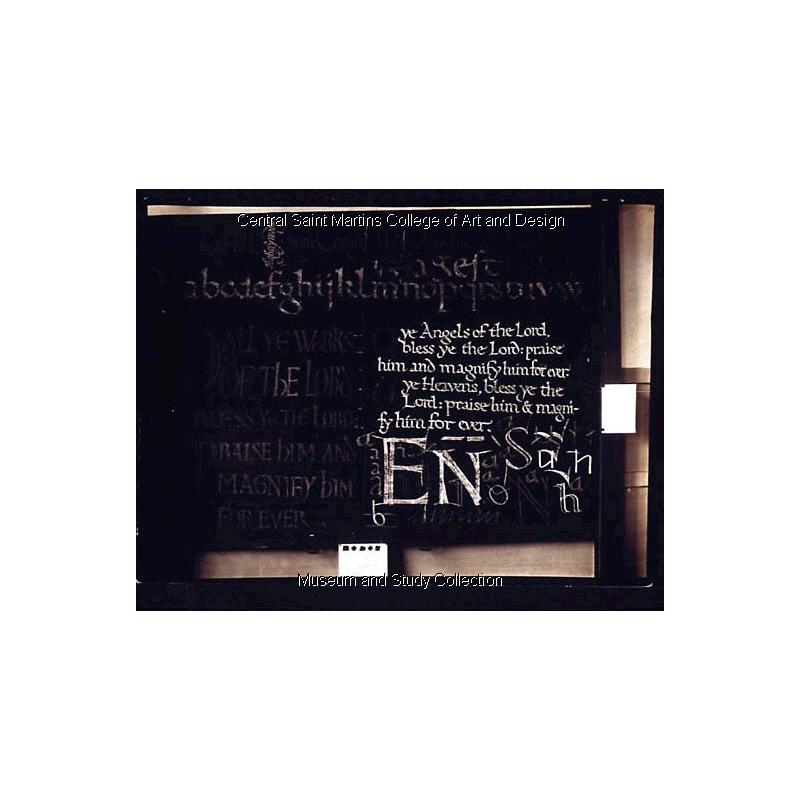 Central Saint Martins College of Art and Design
abcdefghijklmnopqrstuvw
ALL YE WORKS
OF THE LORD
BLESS YE THE LORD:
PRAISE HIM AND
MAGNIFY HIM
FOR EVER
ye Angels of the Lord,
bless ye the Lord: praise
him and magnify him for ever.
ye Heavens, bless ye the
Lord: praise him & magni-
fy him for ever.
EN
Museum and Study Collection